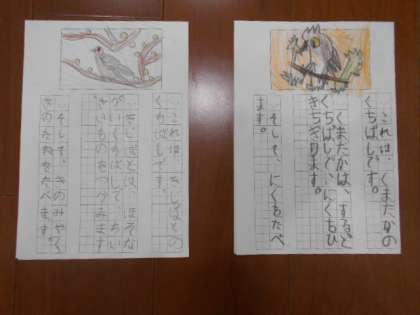 これは、くまたかの
くちばしです。
くまたかは、するど
いくちばしで、にくをひ
きちぎります。
そして、にくをたべ
ます。
これは、きじばとの
くちばしです。
きじばとは、ほそな
がいくちばしで、ちい
さいものをつかみます
そして、きのみや
のたねをたべます。